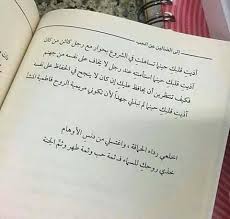 إلى الضالين عن الحب
آذيتِ قلبكِ حينما تساهلتِ في الشروع بحوار مع رجل كائن من كان
آذيتِ قلبكِ حينما استأمنتِ عند رجل لا يخاف على نفسه من جهنم
فكيف تنتظرين أن يحافظ عليكِ إن كان لا ينجح في الحفاظ على نفسه
آذيتِ قلبكِ حينما لم تبذلي جهداً لأن تكوني مريمية الروح فاطمية
اخلعي رداء الحماقة، واغتسلي من دنس الأوهام
خذي روحكِ للسماء فـ ثمة حب وثمة طهر وثمَّ الجنة